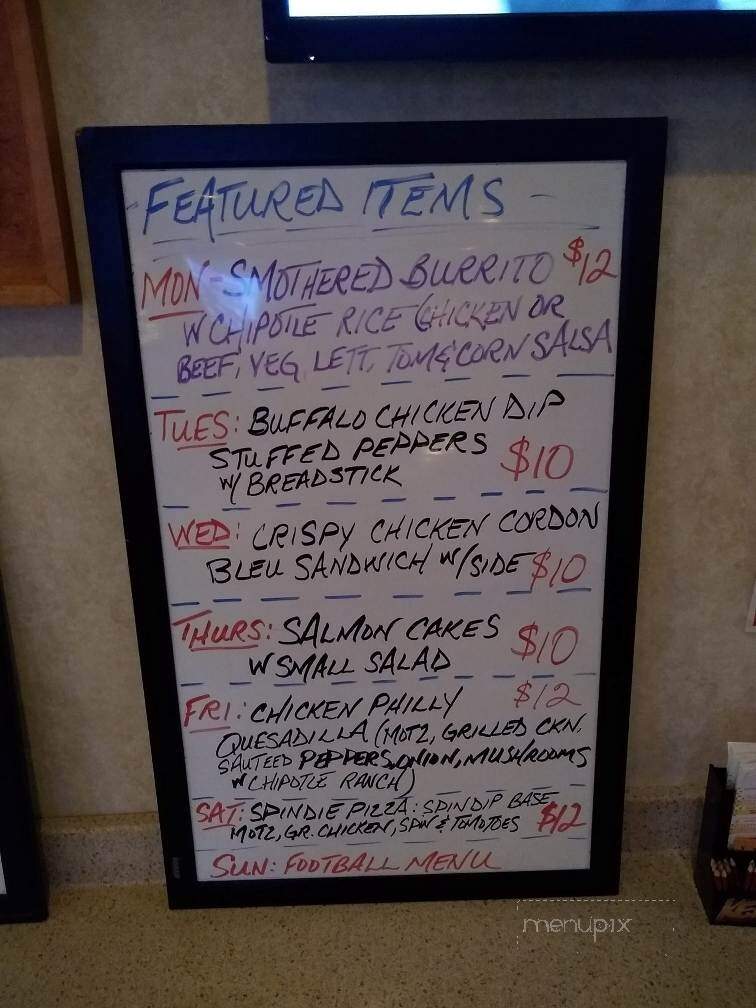 - FEATURED ITEMS -
MON - SMOTHERED BURRITO $12
W CHIPOTLE RICE (CHICKEN OR
BEEF, VEG, LETT, TOM & CORN SALSA
TUES: BUFFALO CHICKEN DIP
STUFFED PEPPERS $10
W/ BREADSTICK
WED: CRISPY CHICKEN CORDON
BLEU SANDWICH W/SIDE $10
THURS: SALMON CAKES $10
W SMALL SALAD
FRI: CHICKEN PHILLY $12
QUESADILLA (MOTZ, GRILLED CKN,
SAUTEED PEPPERS, ONION, MUSHROOMS
W CHIPOTLE RANCH)
SAT: SPINDIE PIZZA: SPINDIP BASE $12
MOTZ, GR. CHICKEN, SPIN & TOMOTOES
SUN: FOOTBALL MENU
menupix